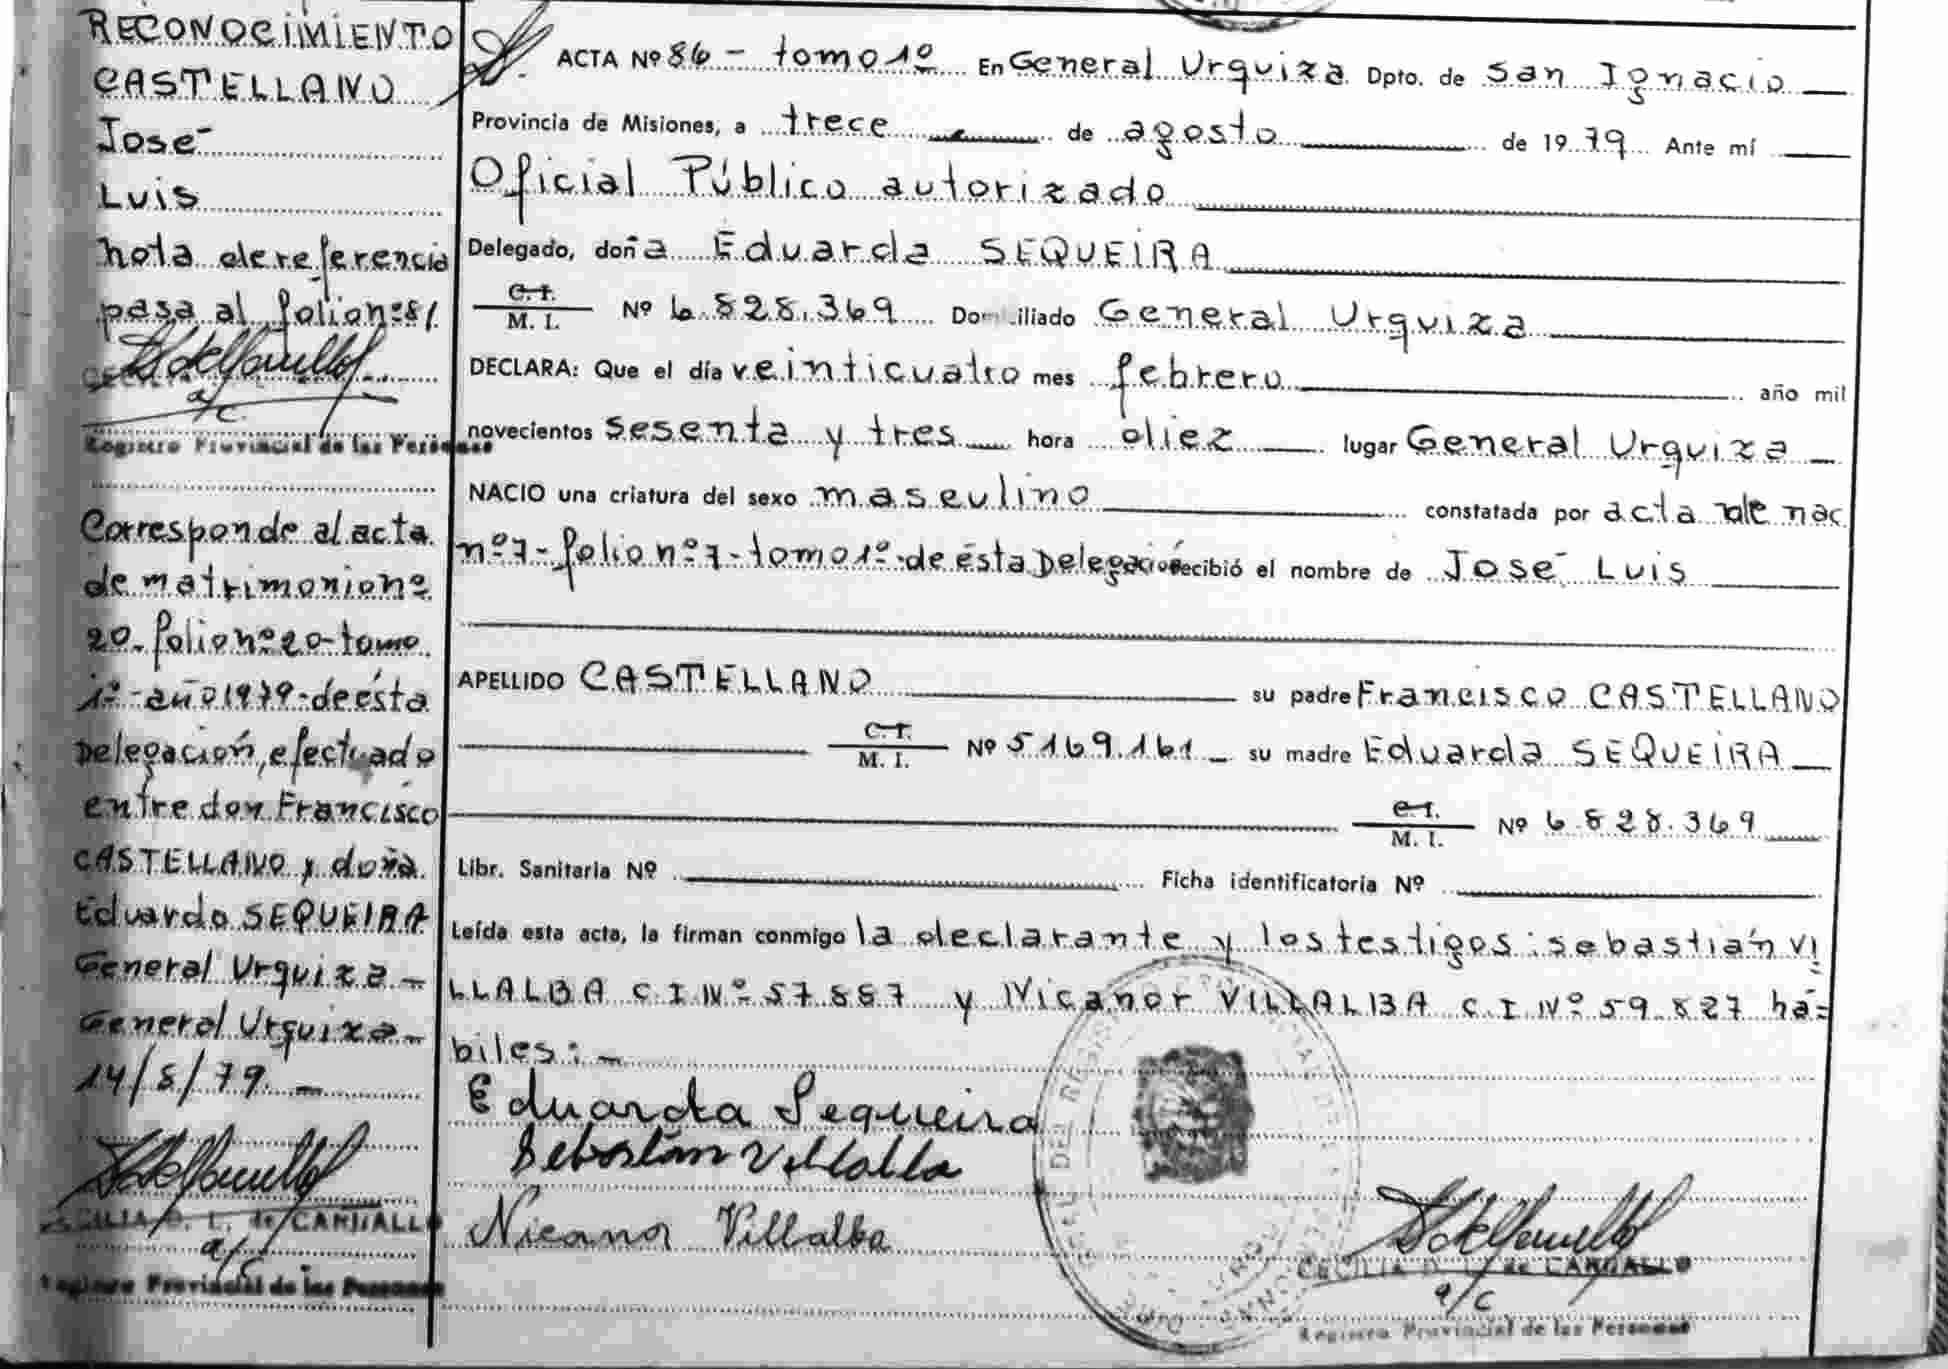 RECONOCIMIENTO
CASTELLANO
José
Luis
nota de referencia
pasa al folio nº 81
a/c
Registro Provincial de las Personas
Corresponde al acta
de matrimonio nº
20-folio nº 20-tomo
1º-año 1979-de ésta
Delegación, efectuado
entre don Francisco
CASTELLANO y doña
Eduarda SEQUEIRA
General Urquiza-
General Urquiza-
14/8/79.-
CECILIA D. L. de CARBALLO
a/c
Registro Provincial de las Personas
ACTA Nº 86 - tomo 1º En General Urquiza Dpto. de San Ignacio
Provincia de Misiones, a trece de agosto de 1979 Ante mí
Oficial Público autorizado
Delegado, doña Eduarda SEQUEIRA
C. I.
M. I. Nº 6.828.369 Domiciliado General Urquiza
DECLARA: Que el día veinticuatro mes febrero año mil
novecientos sesenta y tres hora diez lugar General Urquiza
NACIO una criatura del sexo masculino constatada por acta de nac
nº 7-folio nº 7-tomo 1º-de ésta Delegación recibió el nombre de José Luis
APELLIDO CASTELLANO su padre Francisco CASTELLANO
C. I.
M. I. Nº 5169.161 su madre Eduarda SEQUEIRA
C. I.
M. I. Nº 6.828.369
Libr. Sanitaria Nº Ficha identificatoria Nº
Leída esta acta, la firman conmigo la declarante y los testigos: Sebastián VI
LLALBA C.I Nº 57.887 y Nicanor VILLALBA C.I Nº 59.827 há=
biles:-
Eduarda Sequeira
Sebastian Villalba
Nicanor Villalba
CECILIA D. L. de CARBALLO
a/c
Registro Provincial de las Personas